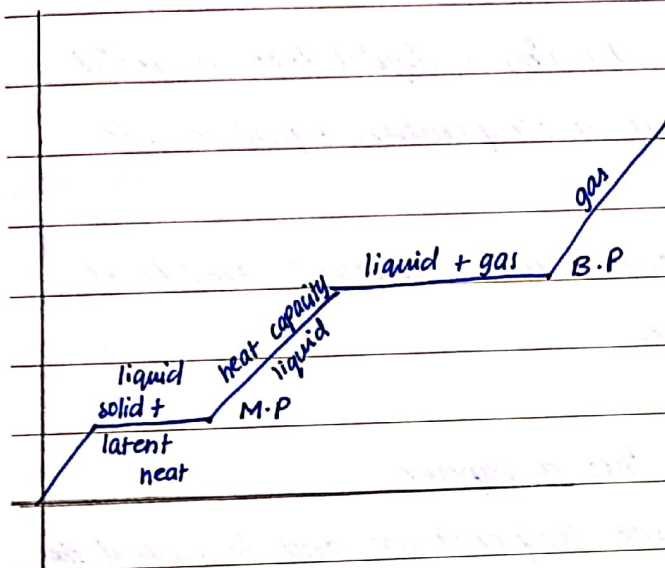 gas
liquid + gas
B.P
heat capacity
liquid
liquid
solid +
M.P
latent
heat